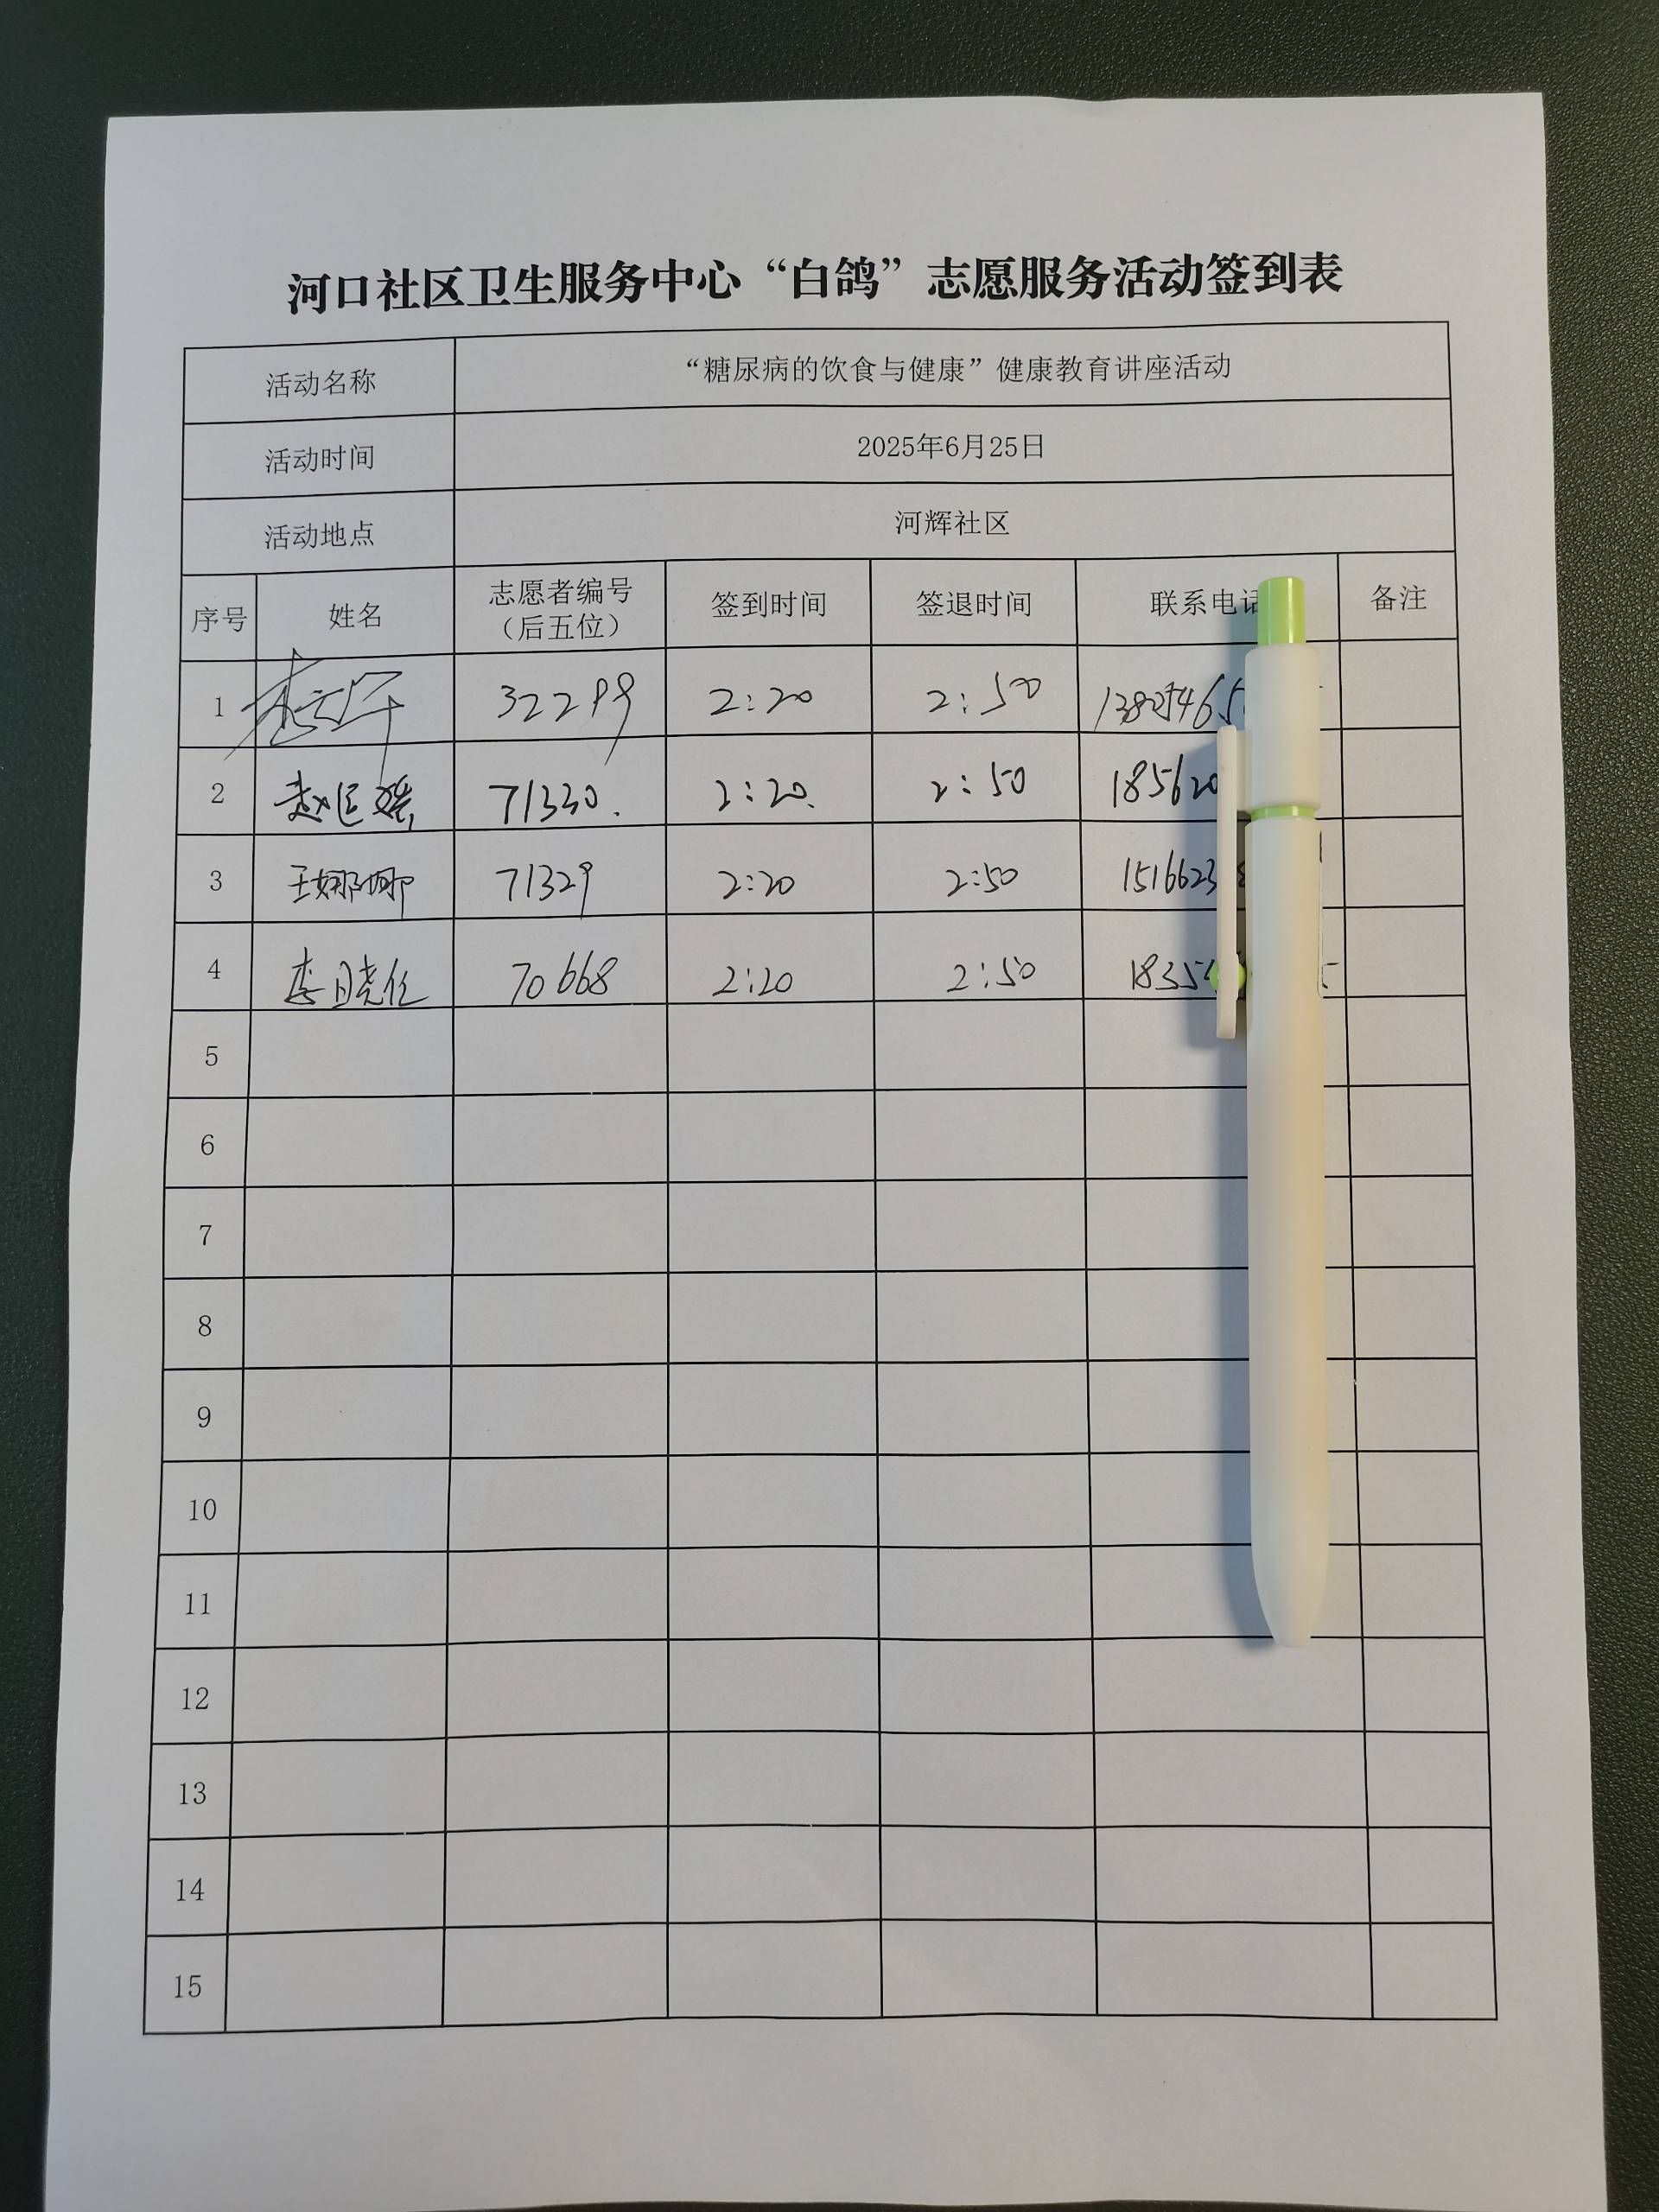 河口社区卫生服务中心“白鸽”志愿服务活动签到表
活动名称 “糖尿病的饮食与健康”健康教育讲座活动
活动时间 2025年6月25日
活动地点 河辉社区
序号 姓名 志愿者编号（后五位） 签到时间 签退时间 联系电话 备注
1 32299 2:20 2:50 1382546
2 71330. 2:20. 2:50 185620
3 王娜娜 71329 2:20 2:50 1516623
4 李晓红 70668 2:20 2:50 1835
5
6
7
8
9
10
11
12
13
14
15